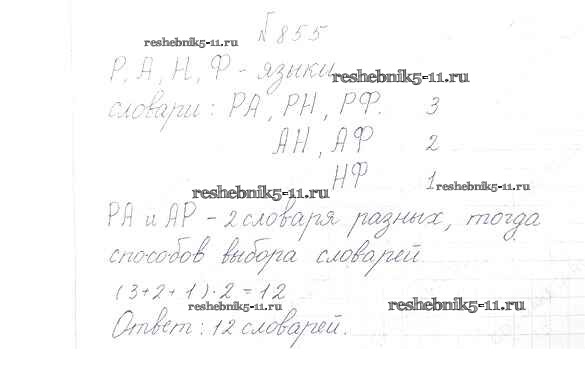 № 855
reshebnik5-11.ru
Р, А, Н, Ф - языки
reshebnik5-11.ru
словари: РА, РН, РФ. 3
АН, АФ 2
НФ 1
reshebnik5-11.ru
reshebnik5-11.ru
РА и АР - 2 словаря разных, тогда
способов выбора словарей
(3+2+1)·2=12
reshebnik5-11.ru
reshebnik5-11.ru
Ответ: 12 словарей.